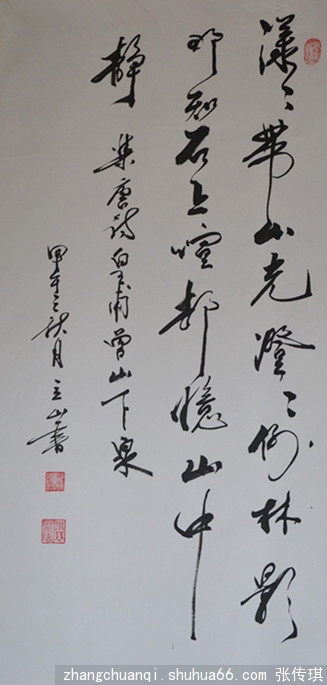 漾〻帶山光澄〻倒林影
那知石上喧却憶山中
静 唐詩皇甫曾山下泉
甲午秋月立山書
zhangchuanqi.shuhua66.com 张传琪